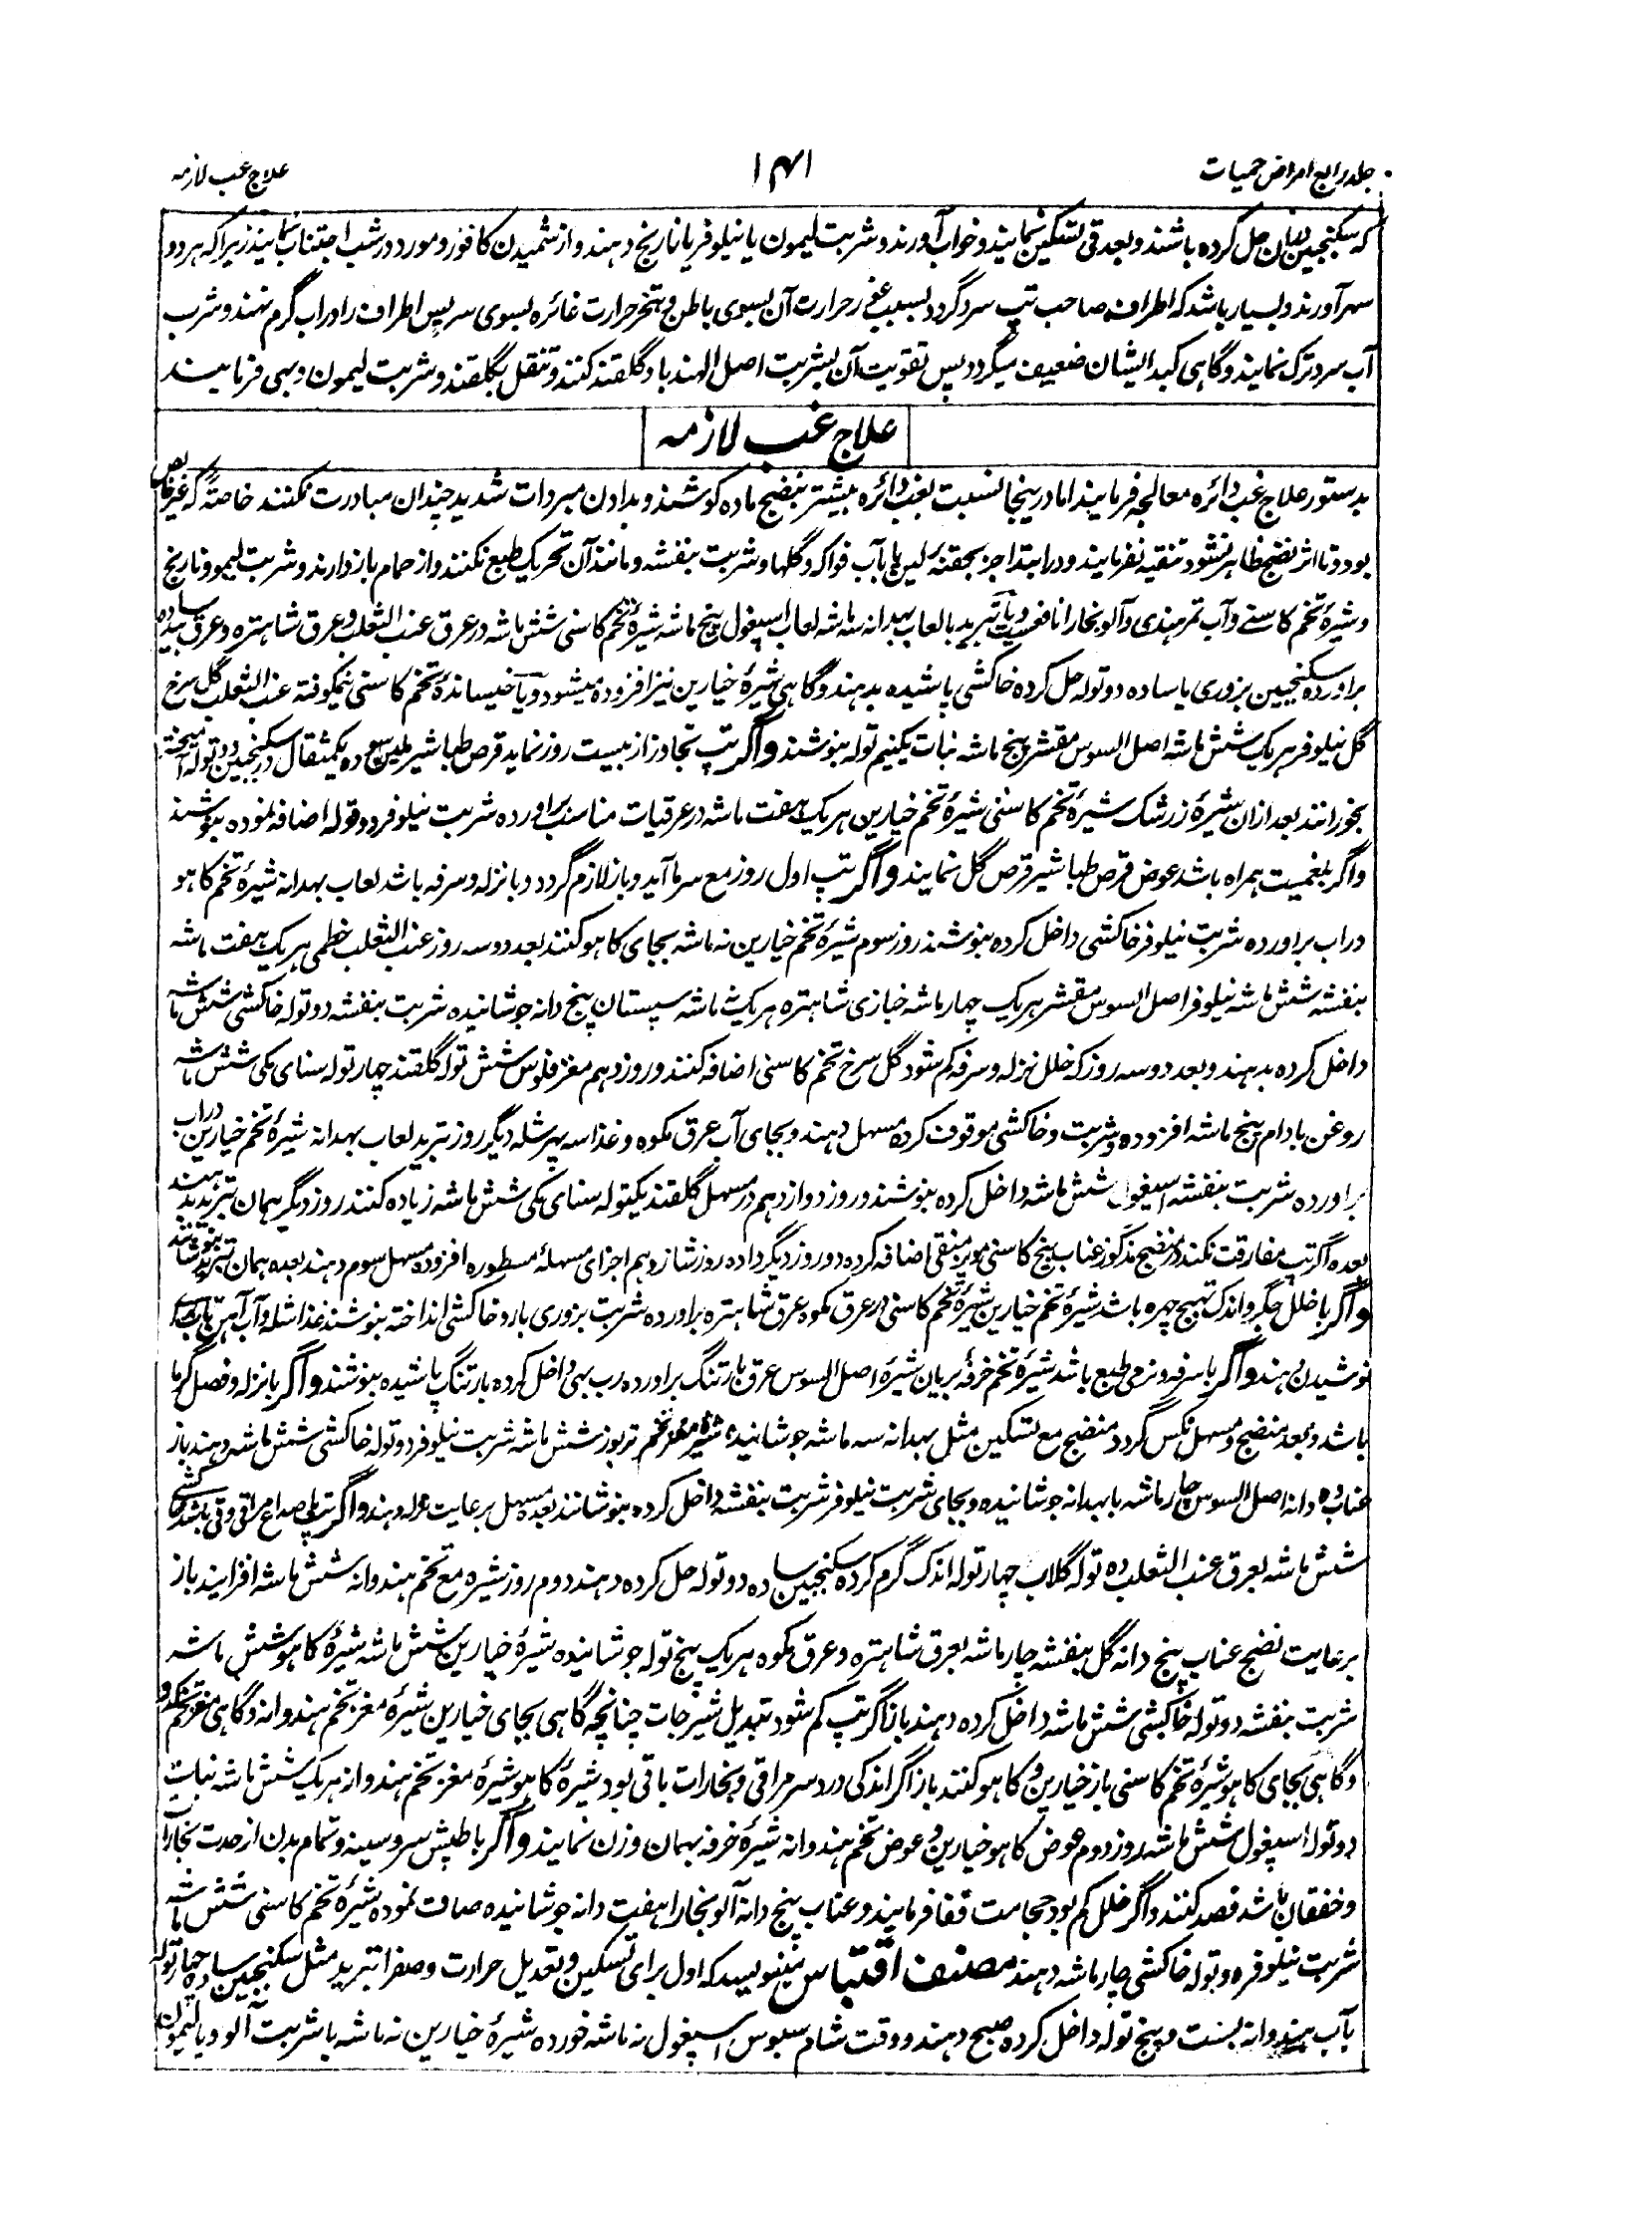 جلد رابع امراض حمیات
۱۴۱
علاج غب لازمه
که سکنجبین بدان حل کرده باشند و بعد قی تسکین نمایند و خواب آورند و شربت لیمون یا نیلوفر یا نارنج دهند و از شمیدن کافور و مورد در شب اجتناب نمایند زیرا که هر دو
سهر آورند و بسیار باشد که اطراف صاحب تپ سرد گردد بسبب غور حرارت آن بسوی باطن و تبخر حرارت غائره بسوی سر پس اطراف را در آب گرم نهند و شرب
آب سرد ترک نمایند و گاهی کبد ایشان ضعیف میگردد پس تقویت آن بشربت اصل الهندبا و گلقند کنند و تنقل بگلقند و شربت لیمون و بهی فرمایند
علاج غب لازمه
بدستور علاج غب دائره معالجه فرمایند اما درینجا نسبت بغب دائره بیشتر بنضج ماده کوشند و بدادن مبردات شدید چندان مبادرت نکنند خاصةً که غیر خالص
بود و تا اثر نضج ظاهر نشود تنقیه نفرمایند و در ابتدا جز بحقنهٔ لین یا بآب فواکه و گلها و شربت بنفشه و مانند آن تحریک طبع نکنند و از حمام باز دارند و شربت لیمو و نارنج
و شیرهٔ تخم کاسنی و آب تمر هندی و آلو بخارا نافعست و یا تبرید بالعاب بهدانه سه ماشه لعاب اسپغول پنج ماشه شیرهٔ تخم کاسنی شش ماشه در عرق عنب الثعلب و عرق شاهتره و عرق بید ساده
براورده سکنجبین بزوری یا ساده دو توله حل کرده خاکشی پاشیده بدهند و گاهی شیرهٔ خیارین نیز افزوده میشود و یا خیساندهٔ تخم کاسنی نیمکوفته عنب الثعلب گل سرخ
گل نیلوفر هر یک شش ماشه اصل السوس مقشر پنج ماشه نبات یکنیم توله بنوشند و اگر تپ تجاوز از بیست روز نماید قرص طباشیر ملین یکمثقال در سکنجبین دو توله آمیخته
بخورانند بعد ازان شیرهٔ زرشک شیرهٔ تخم کاسنی شیرهٔ تخم خیارین هر یک هفت ماشه در عرقیات مناسب براورده شربت نیلوفر دو توله اضافه نموده بنوشند
و اگر بلغمیت همراه باشد عوض قرص طباشیر قرص گل نمایند و اگر تپ اول روز مع سرما آید و باز لازم گردد و با نزله و سرفه باشد لعاب بهدانه شیرهٔ تخم کاهو
در آب براورده شربت نیلوفر خاکشی داخل کرده بنوشند روز سوم شیرهٔ تخم خیارین نه ماشه بجای کاهو کنند بعد دو سه روز عنب الثعلب خطمی هر یک هفت ماشه
بنفشه شش ماشه نیلوفر اصل السوس مقشر هر یک چهار ماشه خبازی شاهتره هر یک ماشه سپستان پنج دانه جوشانیده شربت بنفشه دو توله خاکشی شش ماشه
داخل کرده بدهند و بعد دو سه روز که خلل نزله و سرفه کم شود گل سرخ تخم کاسنی اضافه کنند و روز دهم مغز فلوس شش توله گلقند چهار توله سنای مکی شش ماشه
روغن بادام پنج ماشه افزوده و شربت و خاکشی موقوف کرده مسهل دهند و بجای آب عرق مکوه و غذا سه پهر شله دیگر روز تبرید لعاب بهدانه شیرهٔ تخم خیارین در آب
براورده شربت بنفشه اسپغول شش ماشه داخل کرده بنوشند و روز دوازدهم در مسهل گلقند یکتوله سنای مکی شش ماشه زیاده کنند روز دیگر همان تبرید بدهند
بعده اگر تپ مفارقت نکند در منضج مذکور عناب بیخ کاسنی مویز منقی اضافه کرده دو روز دیگر داده روز شانزدهم اجزای مسهلهٔ مسطوره افزوده مسهل سوم دهند بعده همان تبرید بنوشانند
و اگر با خلل جگر و اندک تهیج چهره باشد شیرهٔ تخم خیارین شیرهٔ تخم کاسنی در عرق مکوه عرق شاهتره براورده شربت بزوری بارد خاکشی انداخته بنوشند غذا شله و آب آهن تاب برای
نوشیدن دهند و اگر با سرفه و نرمی طبع باشد شیرهٔ تخم خرفهٔ بریان شیرهٔ اصل السوس عرق بارتنگ براورده رب بهی داخل کرده بارتنگ پاشیده بنوشند و اگر با نزله و فصل گرما
باشد و بعد منضج و مسهل نکس گردد منضج مع تسکین مثل بهدانه سه ماشه جوشانیده شیره مغز تخم تربوز شش ماشه شربت نیلوفر دو توله خاکشی شش ماشه دهند باز
عناب ده دانه اصل السوس چار ماشه با بهدانه جوشانیده و بجای شربت نیلوفر شربت بنفشه داخل کرده بنوشانند بعده مسهل برعایت نزله دهند و اگر تپ با صداع مراقی و قی باشد
شش ماشه بعرق عنب الثعلب ده توله گلاب چهار توله اندک گرم کرده سکنجبین ساده دو توله حل کرده دهند دوم روز شیره مع تخم هندوانه شش ماشه افزایند باز
برعایت نضج عناب پنج دانه گل بنفشه چار ماشه بعرق شاهتره و عرق مکوه هر یک پنج توله جوشانیده شیرهٔ خیارین شش ماشه شیرهٔ کاهو شش ماشه
شربت بنفشه دو توله خاکشی شش ماشه داخل کرده دهند باز اگر تپ کم شود تبدیل شیرجات چنانچه گاهی بجای خیارین شیرهٔ مغز تخم هندوانه و گاهی مغز تخم کدو
و گاهی بجای کاهو شیرهٔ تخم کاسنی باز خیارین و کاهو کنند باز اگر اندکی درد سر مراقی و بخارات باقی بود شیرهٔ کاهو شیرهٔ مغز تخم هندوانه هر یک شش ماشه نبات
دو توله اسپغول شش ماشه روز دوم عوض کاهو خیارین و عوض تخم هندوانه شیرهٔ خرفه بهمان وزن نمایند و اگر با طپش سر و سینه و تمام بدن از حدت بخارات
و خفقان باشد فصد کنند و اگر خلل کم بود حجامت قفا فرمایند و عناب پنج دانه آلو بخارا هفت دانه جوشانیده صاف نموده شیرهٔ تخم کاسنی شش ماشه
شربت نیلوفر دو توله خاکشی چار ماشه دهند مصنف اقتباس مینویسد که اول برای تسکین و تعدیل حرارت و صفرا تبرید مثل سکنجبین ساده چهار توله
بآب هندوانه بست و پنج توله داخل کرده صبح دهند و وقت شام سبوس اسپغول نه ماشه خورده شیرهٔ خیارین نه ماشه با شربت آلو و یا لیمون